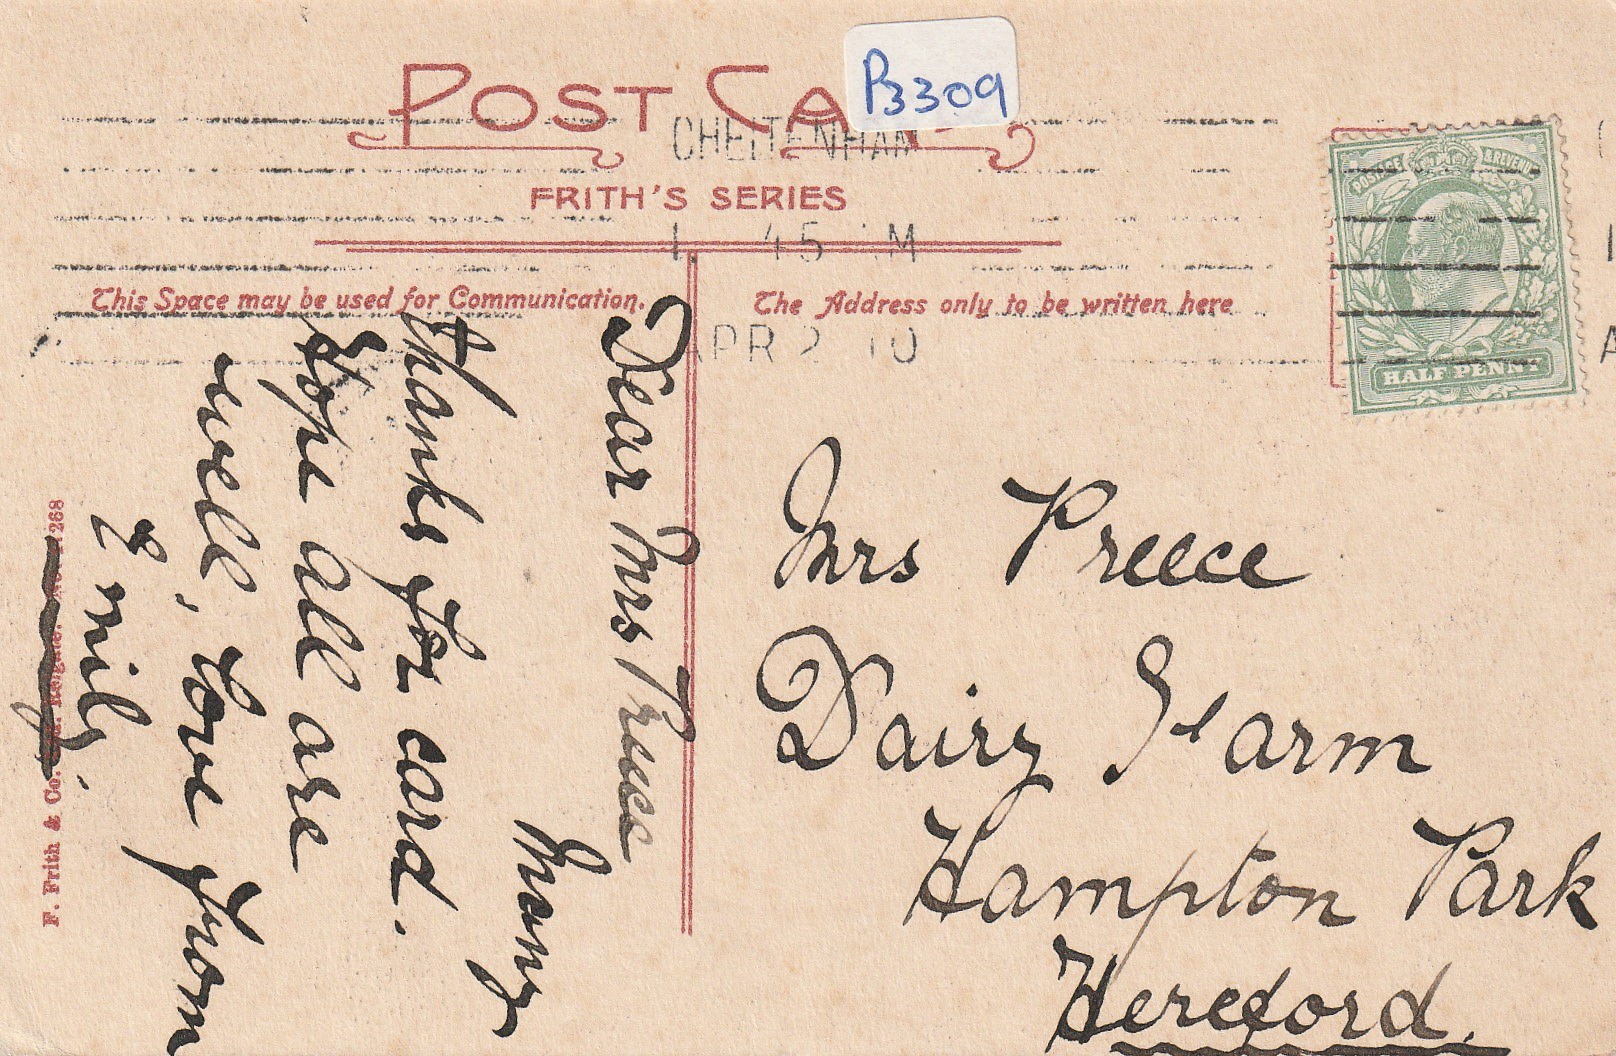 POST CA
B3309
CHELTENHAM
FRITH'S SERIES
45 M
APR 2 10
This Space may be used for Communication.
The Address only to be written here
POSTAGE & REVENUE
HALF PENNY
Dear Mrs Preece
Many
thanks for card.
Hope all are
well, love from
Emily.
Mrs Preece
Dairy Farm
Hampton Park
Hereford.
F. Frith & Co. Ltd. Reigate. 268